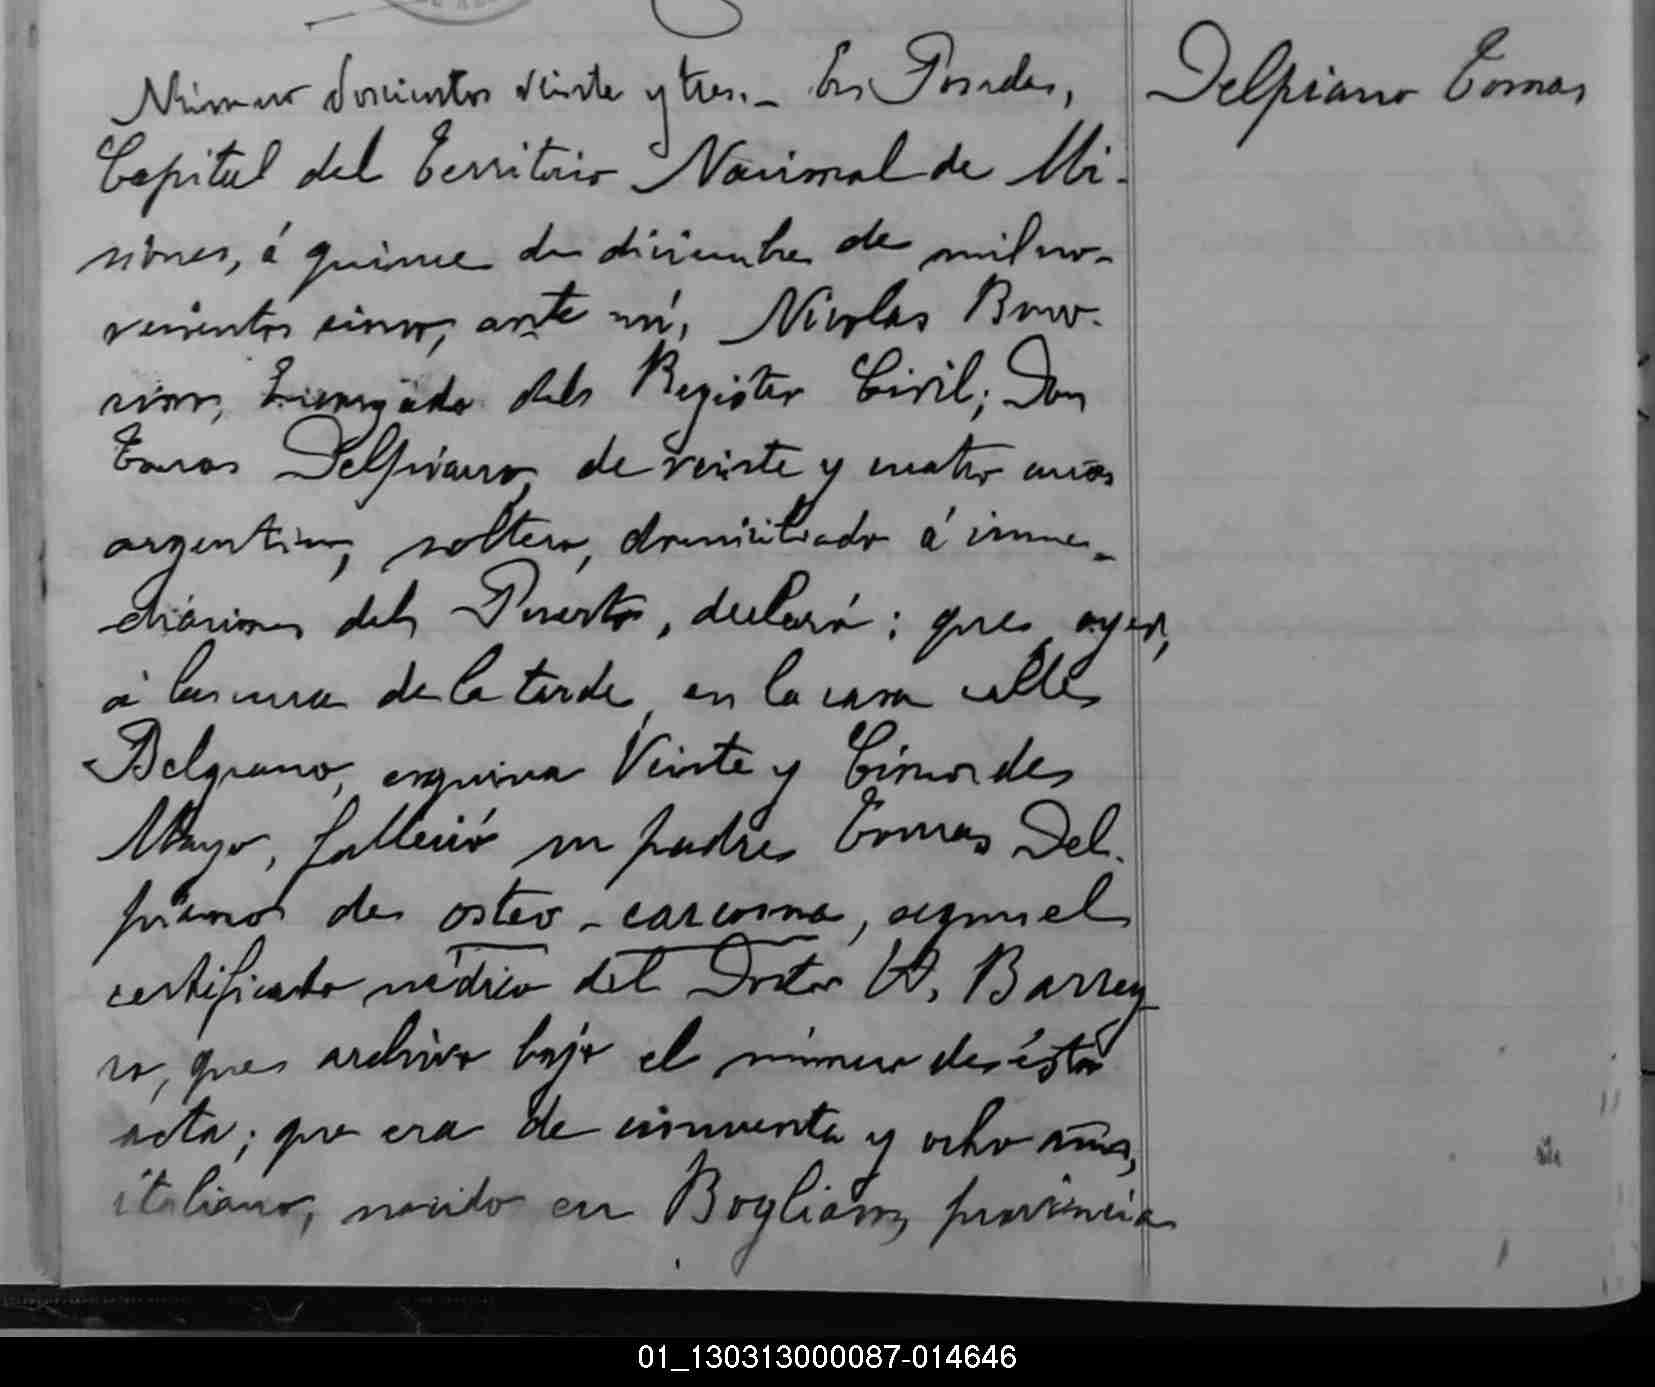 Delpiano Tomas
Número doscientos veinte y tres._ En Posadas,
Capital del Territorio Nacional de Mi-
siones, á quince de diciembre de mil no-
vecientos cinco, ante mí, Nicolas
Encargado del Registro Civil; Don
Tomas Delpiano, de veinte y cuatro años
argentino, soltero, domiciliado á inme-
diaciones del Puerto, declaró: que ayer,
á las una de la tarde, en la casa calle
Belgrano, esquina Veinte y Cinco de
Mayo, falleció su padre Tomas Del-
piano de osteo-sarcoma, segun el
certificado médico del Doctor W. Barrey-
ro, que archivo bajo el número de ésta
acta; que era de cincuenta y ocho años,
italiano, nacido en Bogliano, provincia
01_130313000087-014646